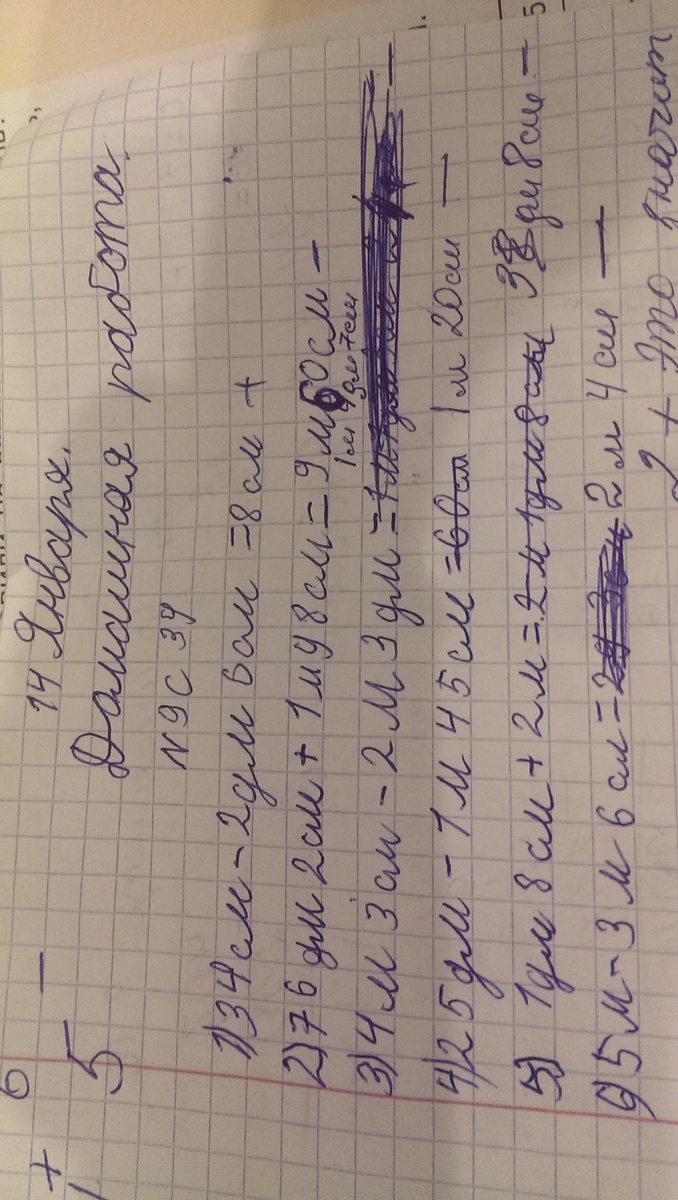 6
+ 5 —
14 Января.
Домашняя работа.
N9 с 39
1) 34 см - 2дм 6 см = 8 см +
2) 76 дм 2 см + 1 м 8 см = 9 м 60 см -
1 м 7 дм 7 см
3) 4 м 3 см - 2 м 3 дм = —
4) 25 дм - 1 м 45 см = 60 см 1 м 20 см —
5) 1 дм 8 см + 2 м = 2 м 1 дм 8 см 38 дм 8 см —
6) 5 м - 3 м 6 см = 2 м 4 см —
2 + это значит